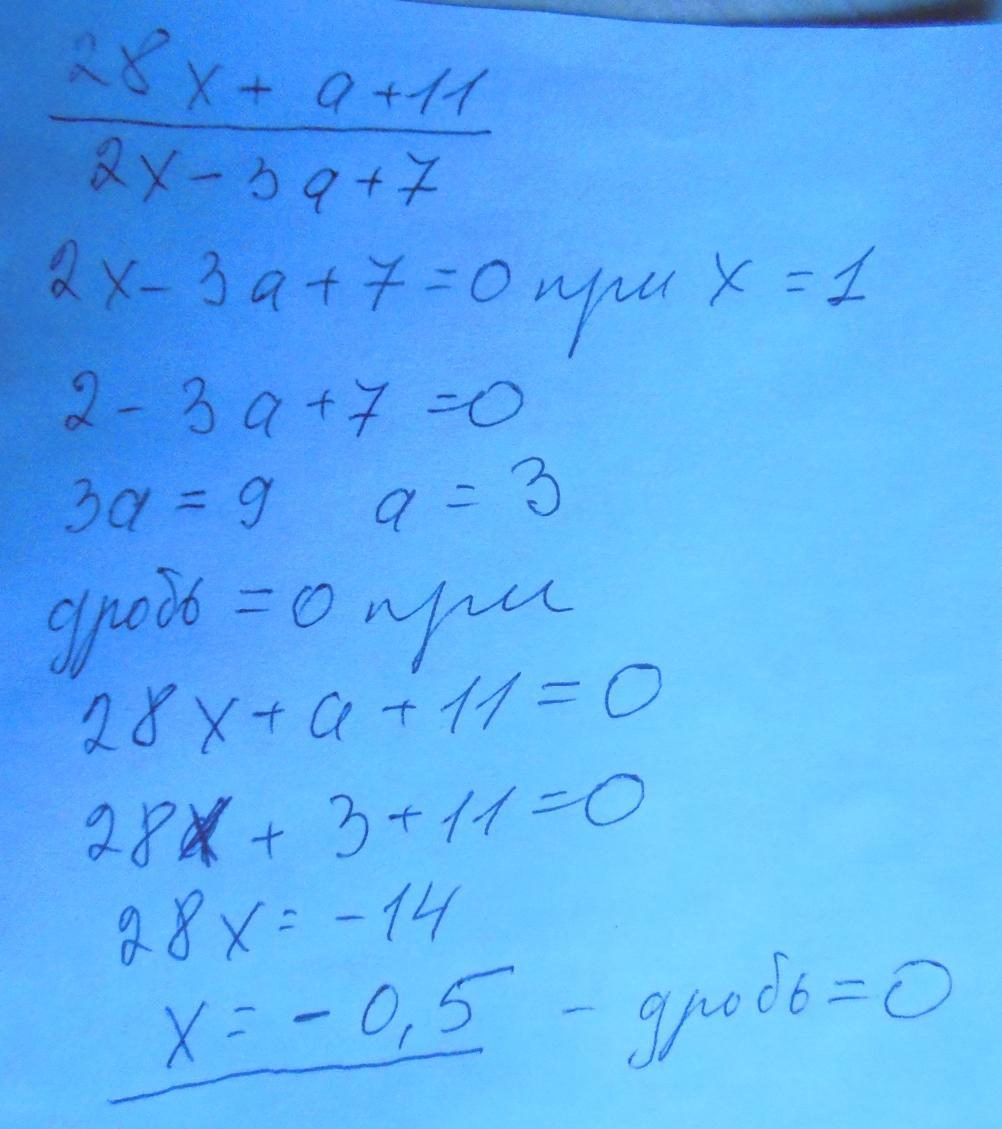 28x + a + 11
2x - 3a + 7
2x - 3a + 7 = 0 при x = 1
2 - 3a + 7 = 0
3a = 9 a = 3
дробь = 0 при
28x + a + 11 = 0
28x + 3 + 11 = 0
28x = -14
x = - 0,5 - дробь = 0